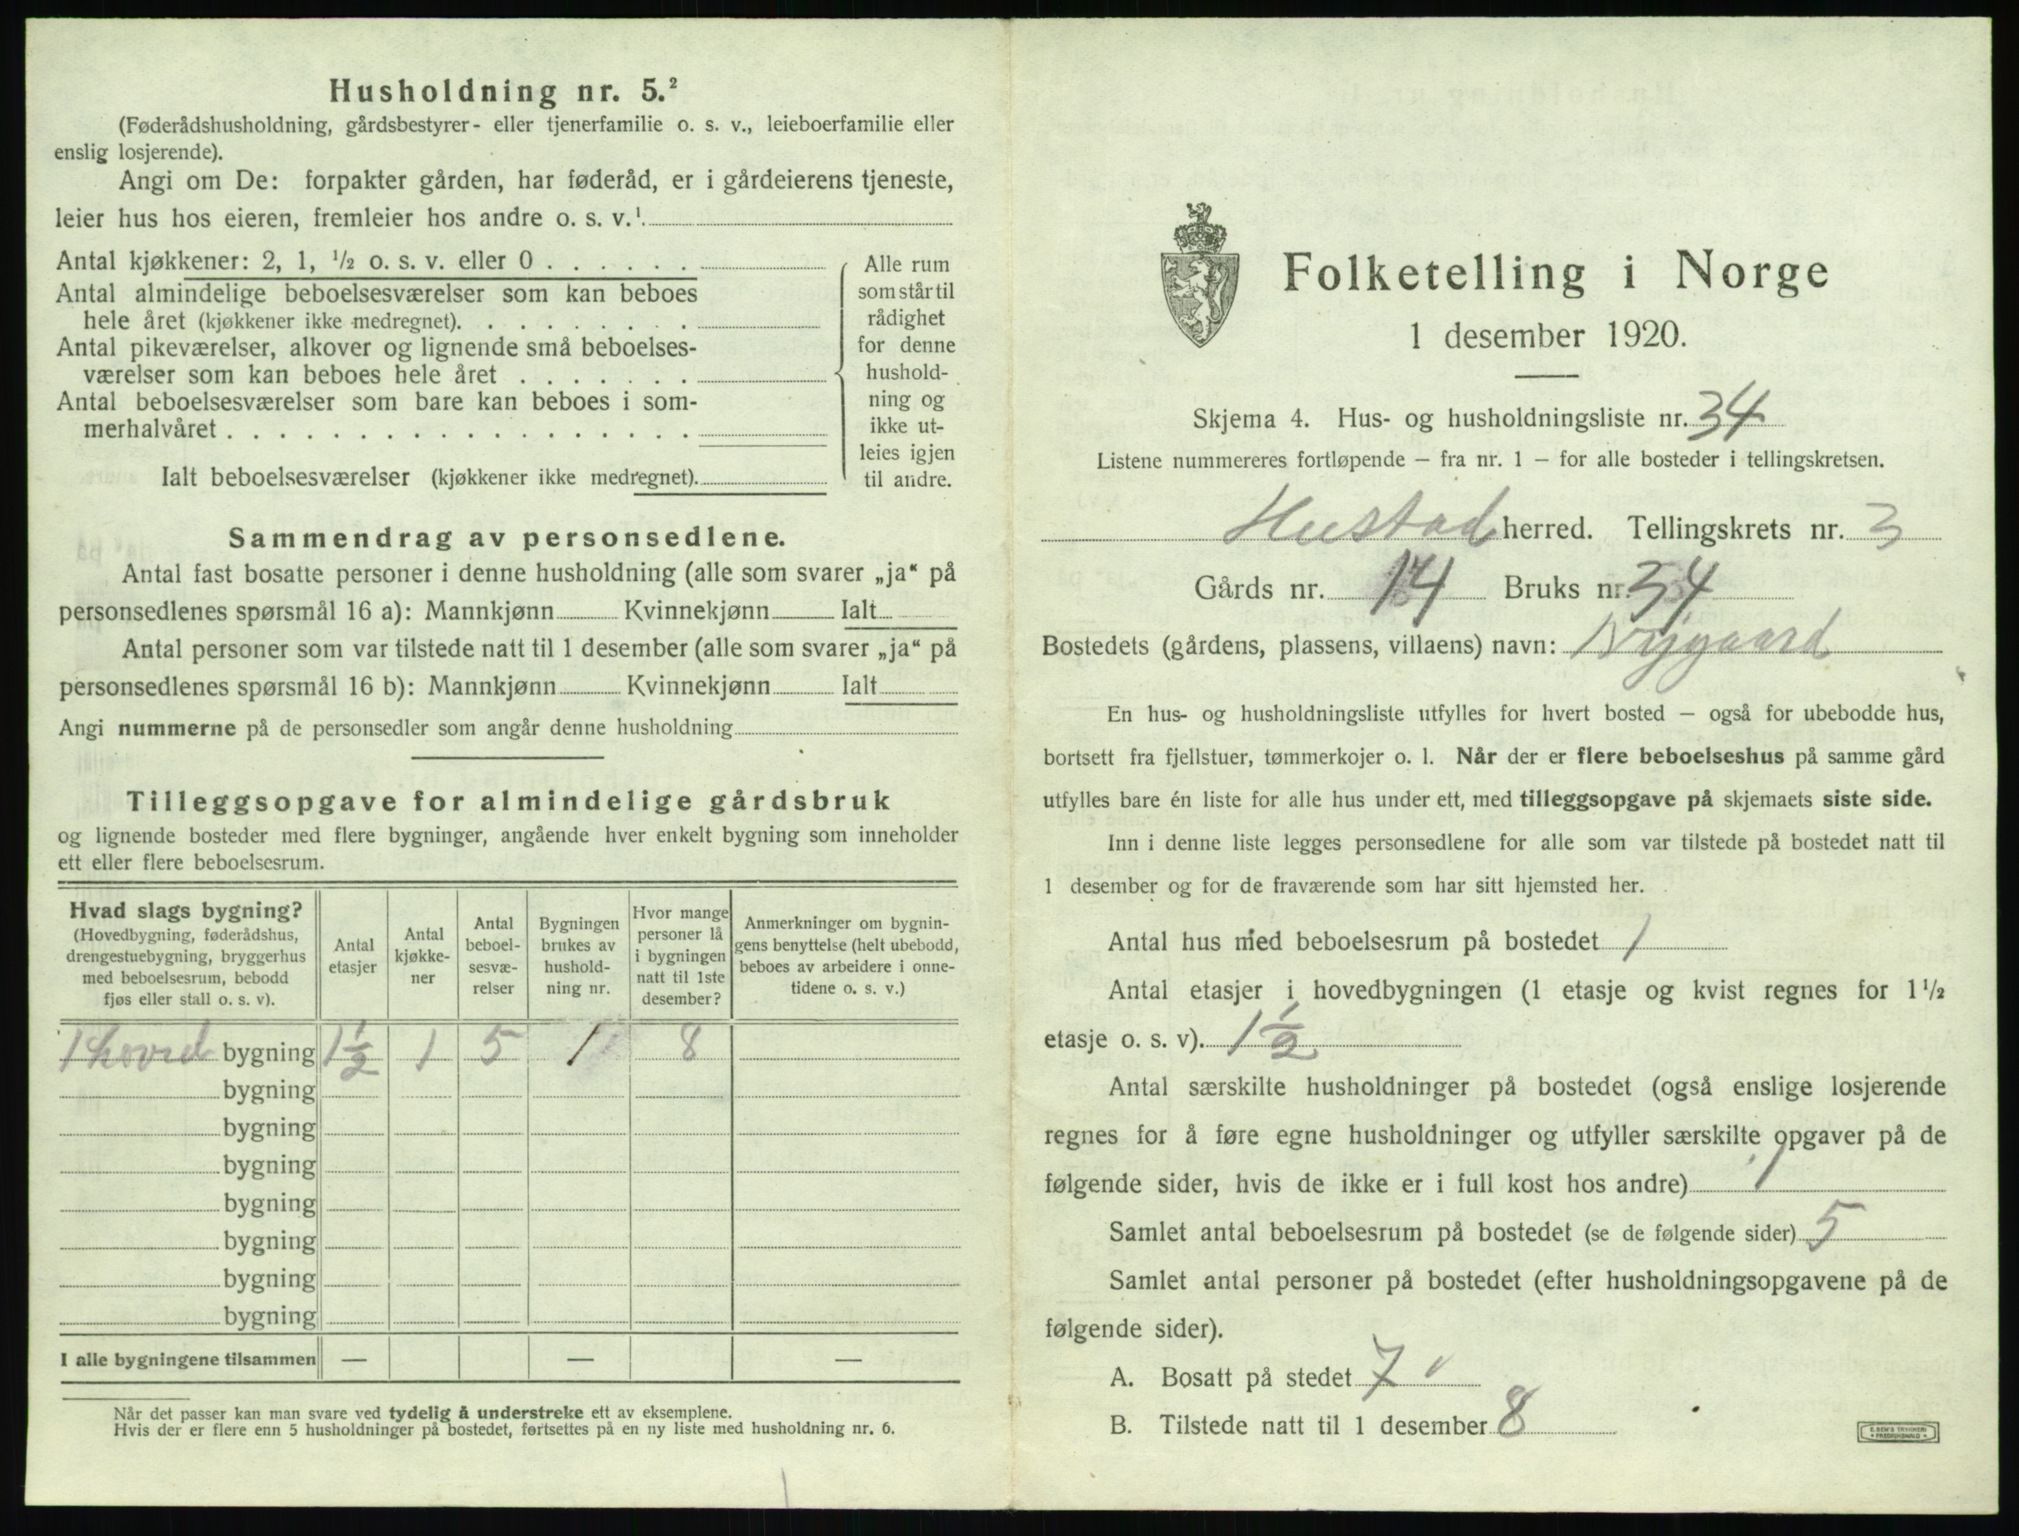 Husholdning nr. 5.²
(Føderådshusholdning, gårdsbestyrer- eller tjenerfamilie o. s. v., leieboerfamilie eller
enslig losjerende).
Angi om De: forpakter gården, har føderåd, er i gårdeierens tjeneste,
leier hus hos eieren, fremleier hos andre o. s. v.¹
Antal kjøkkener: 2, 1, ½ o. s. v. eller 0 . . . . . .
Antal almindelige beboelsesværelser som kan beboes
hele året (kjøkkener ikke medregnet). . . . . . . . .
Antal pikeværelser, alkover og lignende små beboelses-
værelser som kan beboes hele året . . . . . . .
Antal beboelsesværelser som bare kan beboes i som-
merhalvåret . . . . . . . . . . . . . . . . . .
Ialt beboelsesværelser (kjøkkener ikke medregnet).
Alle rum
som står til
rådighet
for denne
hushold-
ning og
ikke ut-
leies igjen
til andre.
Sammendrag av personsedlene.
Antal fast bosatte personer i denne husholdning (alle som svarer „ja“ på
personsedlenes spørsmål 16 a): Mannkjønn Kvinnekjønn Ialt
Antal personer som var tilstede natt til 1 desember (alle som svarer „ja“ på
personsedlenes spørsmål 16 b): Mannkjønn Kvinnekjønn Ialt
Angi nummerne på de personsedler som angår denne husholdning
Tilleggsopgave for almindelige gårdsbruk
og lignende bosteder med flere bygninger, angående hver enkelt bygning som inneholder
ett eller flere beboelsesrum.
Hvad slags bygning?
(Hovedbygning, føderådshus,
drengestuebygning, bryggerhus
med beboelsesrum, bebodd
fjøs eller stall o. s. v).
Antal
etasjer
Antal
kjøkke-
ner
Antal
beboel-
sesvæ-
relser
Bygningen
brukes av
hushold-
ning nr.
Hvor mange
personer lå
i bygningen
natt til 1ste
desember?
Anmerkninger om bygnin-
gens benyttelse (helt ubebodd,
beboes av arbeidere i onne-
tidene o. s. v.)
1 hoved bygning 1½ 1 5 1 8
bygning
bygning
bygning
bygning
bygning
bygning
bygning
I alle bygningene tilsammen — — —
Når det passer kan man svare ved tydelig å understreke ett av eksemplene.
Hvis der er flere enn 5 husholdninger på bostedet, fortsettes på en ny liste med husholdning nr. 6.
Folketelling i Norge
1 desember 1920.
Skjema 4. Hus- og husholdningsliste nr. 34
Listene nummereres fortløpende – fra nr. 1 – for alle bosteder i tellingskretsen.
Hustad herred. Tellingskrets nr. 3
Gårds nr. 14 Bruks nr. 34
Bostedets (gårdens, plassens, villaens) navn: Nygaard
En hus- og husholdningsliste utfylles for hvert bosted – også for ubebodde hus,
bortsett fra fjellstuer, tømmerkojer o. l. Når der er flere beboelseshus på samme gård
utfylles bare én liste for alle hus under ett, med tilleggsopgave på skjemaets siste side.
Inn i denne liste legges personsedlene for alle som var tilstede på bostedet natt til
1 desember og for de fraværende som har sitt hjemsted her.
Antal hus med beboelsesrum på bostedet 1
Antal etasjer i hovedbygningen (1 etasje og kvist regnes for 1½
etasje o. s. v). 1½
Antal særskilte husholdninger på bostedet (også enslige losjerende
regnes for å føre egne husholdninger og utfyller særskilte opgaver på de
følgende sider, hvis de ikke er i full kost hos andre) 1
Samlet antal beboelsesrum på bostedet (se de følgende sider) 5
Samlet antal personer på bostedet (efter husholdningsopgavene på de
følgende sider).
A. Bosatt på stedet 7
B. Tilstede natt til 1 desember 8